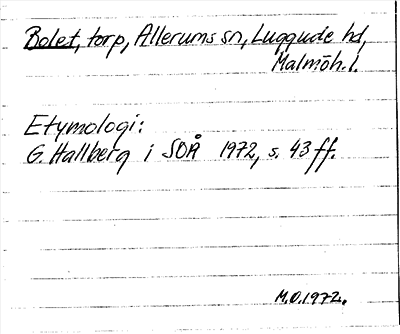 Bolet, torp, Allerums sn, Luggude hd,
Malmöh. l.
Etymologi:
G. Hallberg i SOÅ 1972, s. 43 ff.
M.O. 1972.